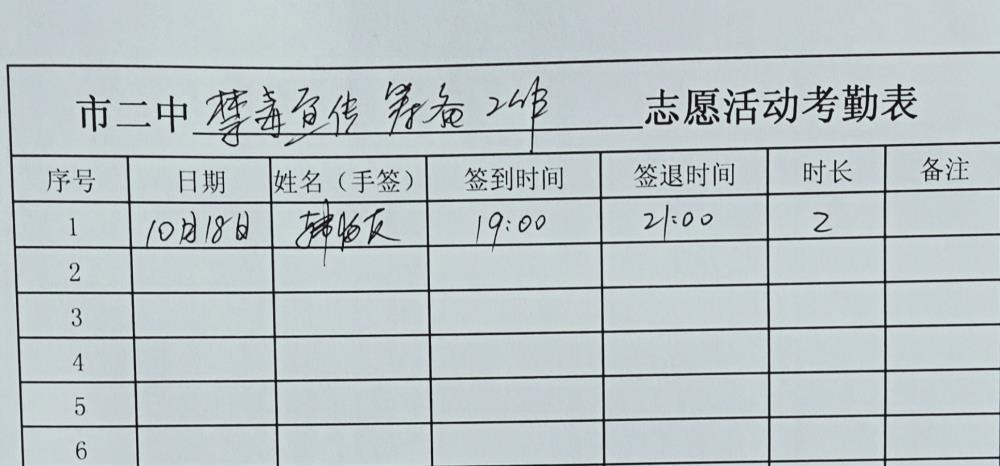 市二中禁毒宣传筹备工作志愿活动考勤表
序号 日期 姓名（手签） 签到时间 签退时间 时长 备注
1 10月18日 韩 友 19:00 21:00 2
2
3
4
5
6